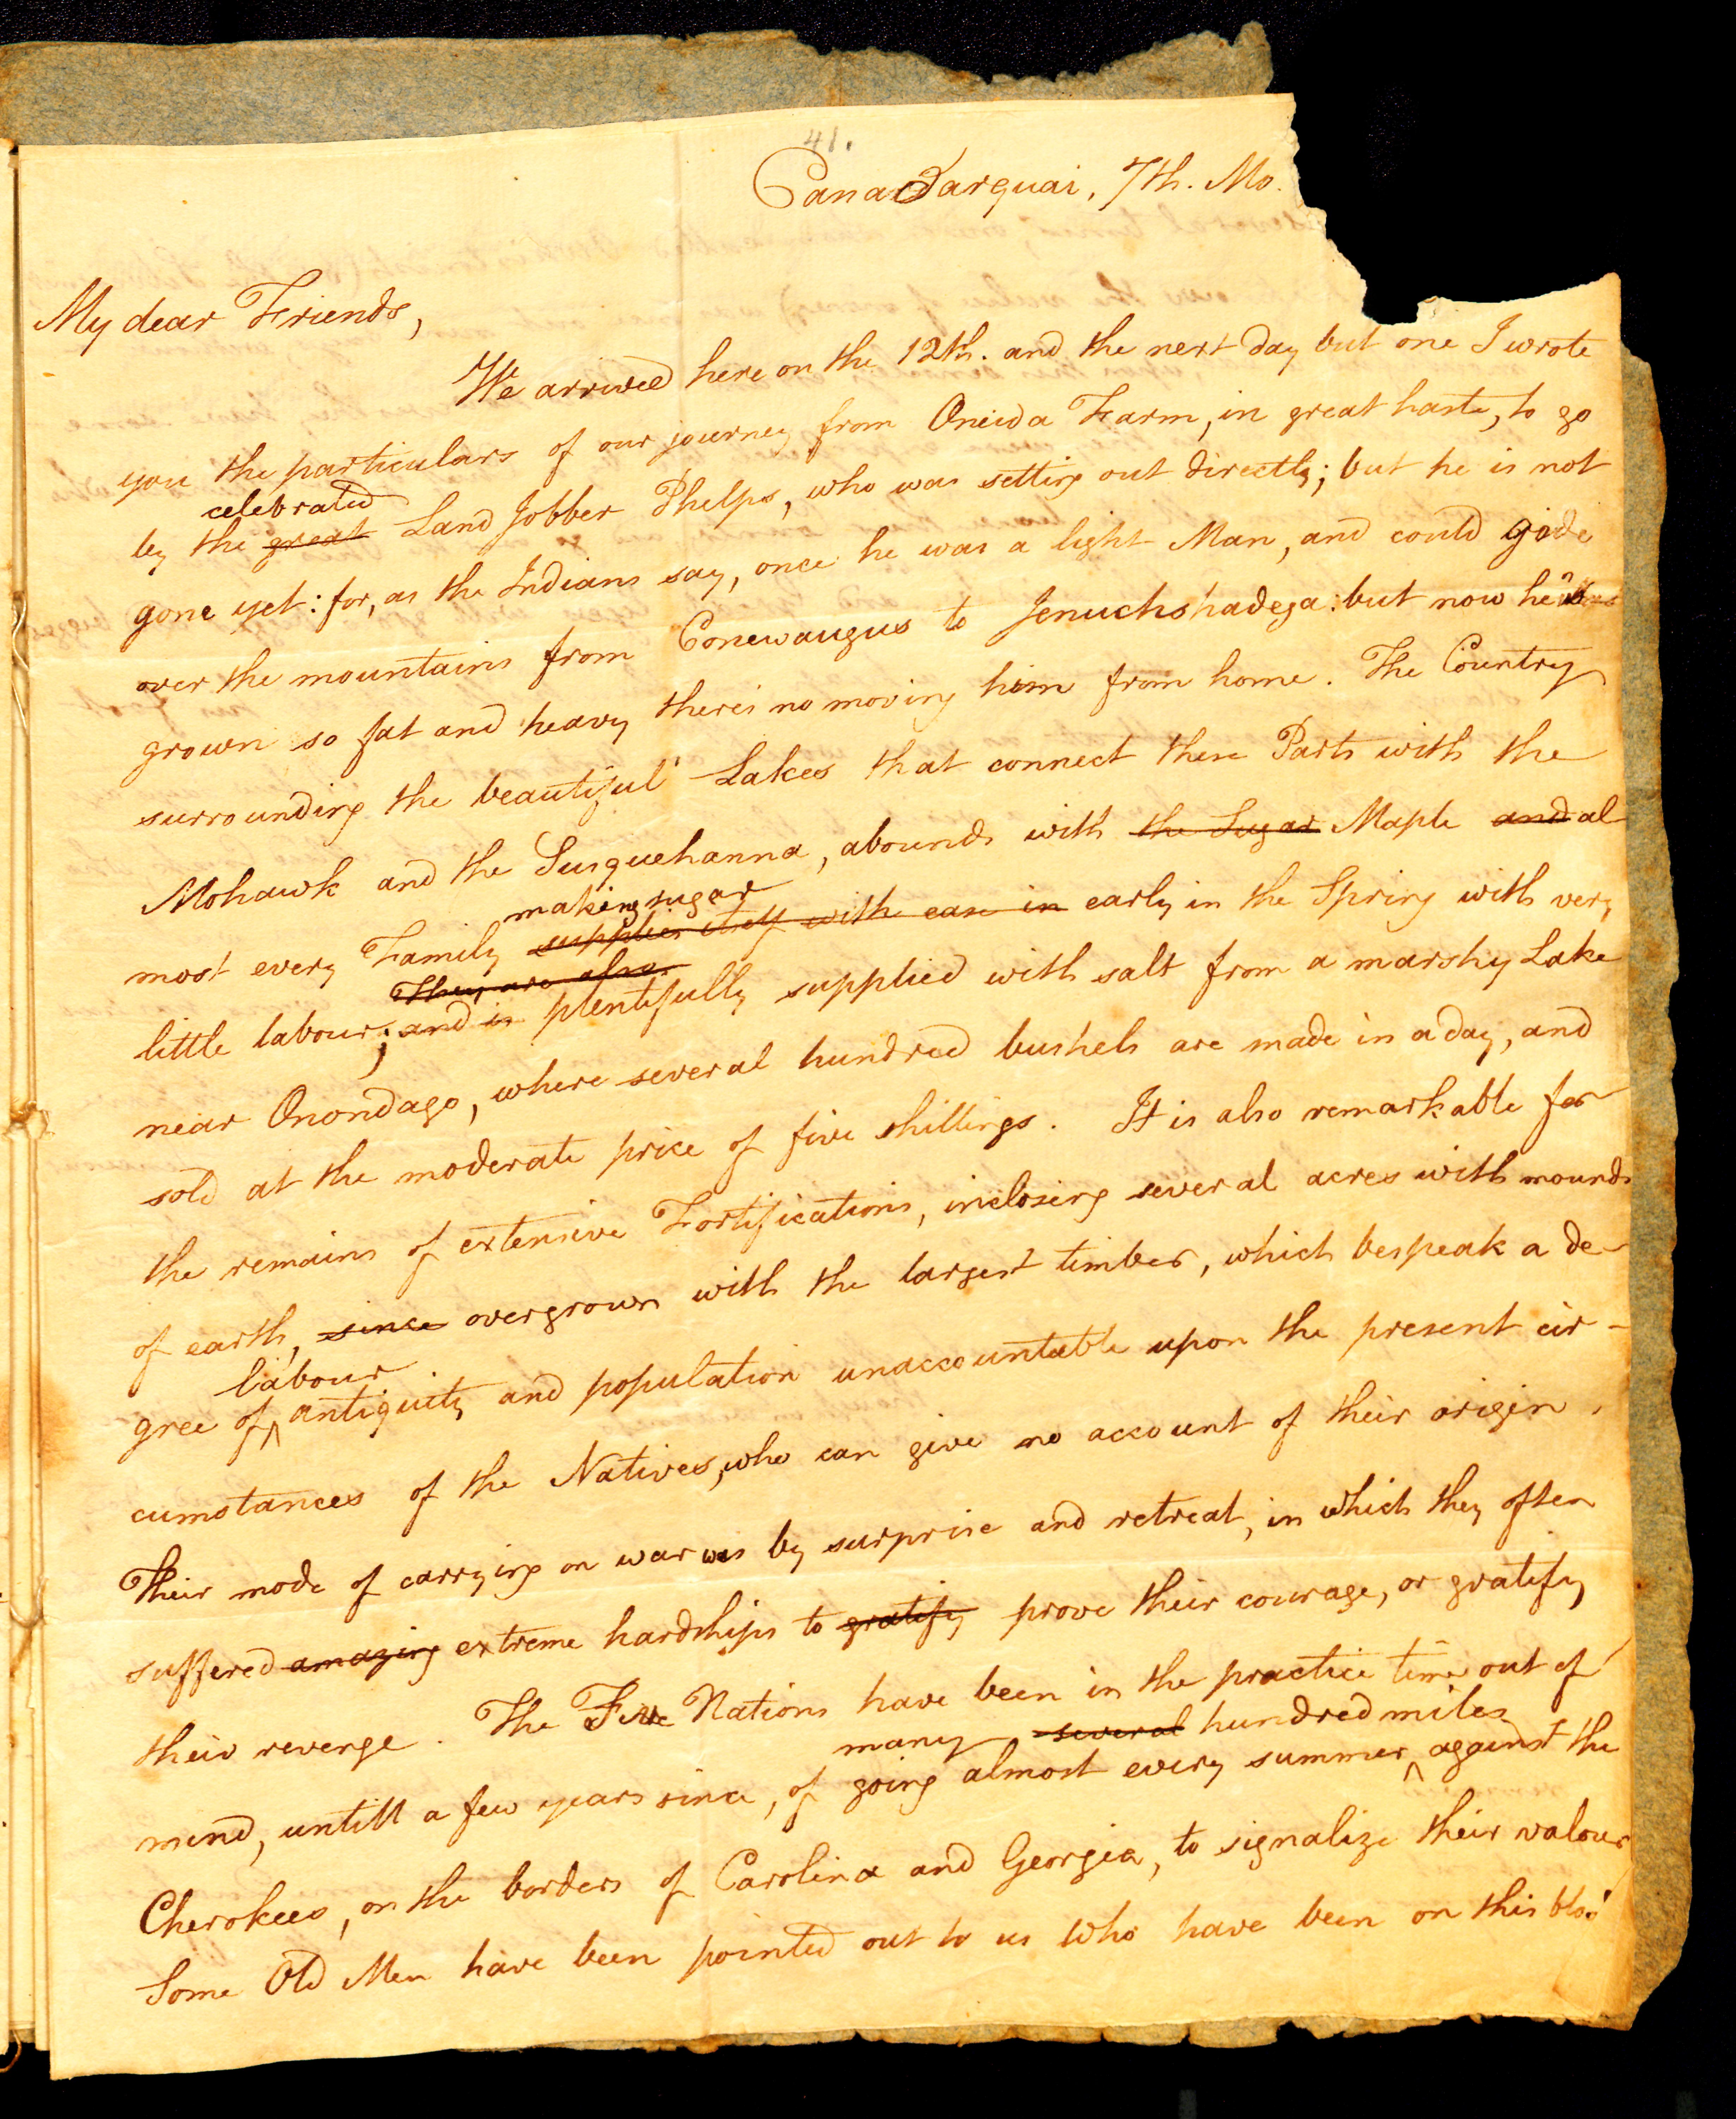 41.
Canadarquai, 7th. Mo.
My dear Friends,
We arrived here on the 12th. and the next day but one I wrote
you the particulars of our journey from Oneida Farm, in great haste, to go
celebrated
by the great Land Jobber Phelps, who was setting out directly; but he is not
gone yet: for, as the Indians say, once he was a light Man, and could
over the mountains from Conewaugus to Jenuchshadega: but now he's
grown so fat and heavy there's no moving him from home. The Country
surrounding the beautiful Lakes that connect these Parts with the
Mohawk and the Susquehanna, abounds with the Sugar Maple and al
making sugar
most every Family supplies itself with ease in early in the Spring with very
They are also
little labour; and is plentifully supplied with salt from a marshy Lake
near Onondago, where several hundred bushels are made in a day, and
sold at the moderate price of five shillings. It is also remarkable for
the remains of extensive Fortifications, inclosing several acres with mounds
of earth, since overgrown with the largest timber, which bespeak a de-
labour
gree of ^ antiquity and population unaccountable upon the present cir-
cumstances of the Natives, who can give no account of their origin.
Their mode of carrying on war was by surprise and retreat, in which they often
suffered amazing extreme hardships to gratify prove their courage, or gratify
their revenge. The Five Nations have been in the practice time out of
many several hundred miles
mind, untill a few years since, of going almost every summer ^ against the
Cherokees, on the borders of Carolina and Georgia, to signalize their valour
Some Old Men have been pointed out to us who have been on this